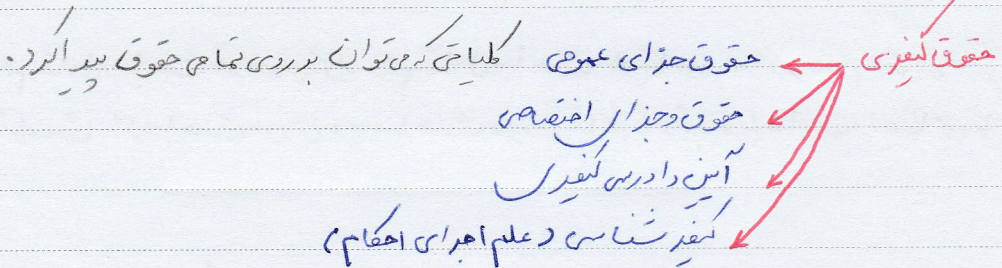 حقوق کیفری حقوق جزای عمومی کلیاتی که می توان بر روی تمامی حقوق پیدا کرد.
حقوق و جزای اختصاصی
آیین دادرسی کیفری
کیفر شناسی (علم اجرای احکام)